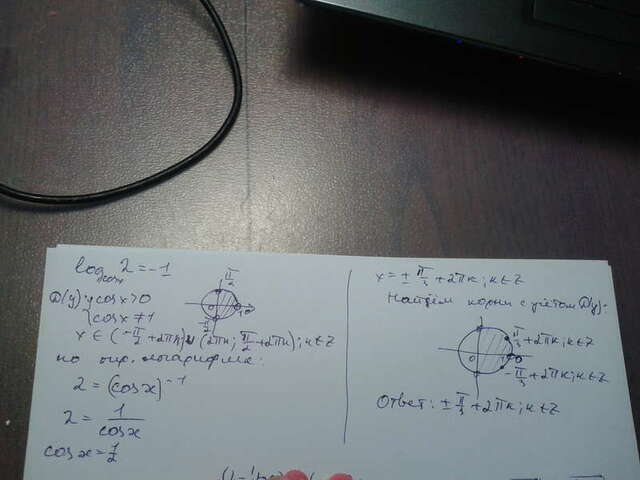 log_cosx 2 = -1
D(y) { cosx>0
{ cosx ≠ 1
π/2
x ∈ (-π/2 + 2πк) ∪ (2πк; π/2 + 2πк); к∈Z
по опр. логарифма:
2 = (cosx)^-1
2 = 1/cosx
cosx = 1/2
x = ± π/3 + 2πк; к∈Z
Найдём корни с учётом D(y):
π/3 + 2πк; к∈Z
-π/3 + 2πк; к∈Z
Ответ: ± π/3 + 2πк; к∈Z